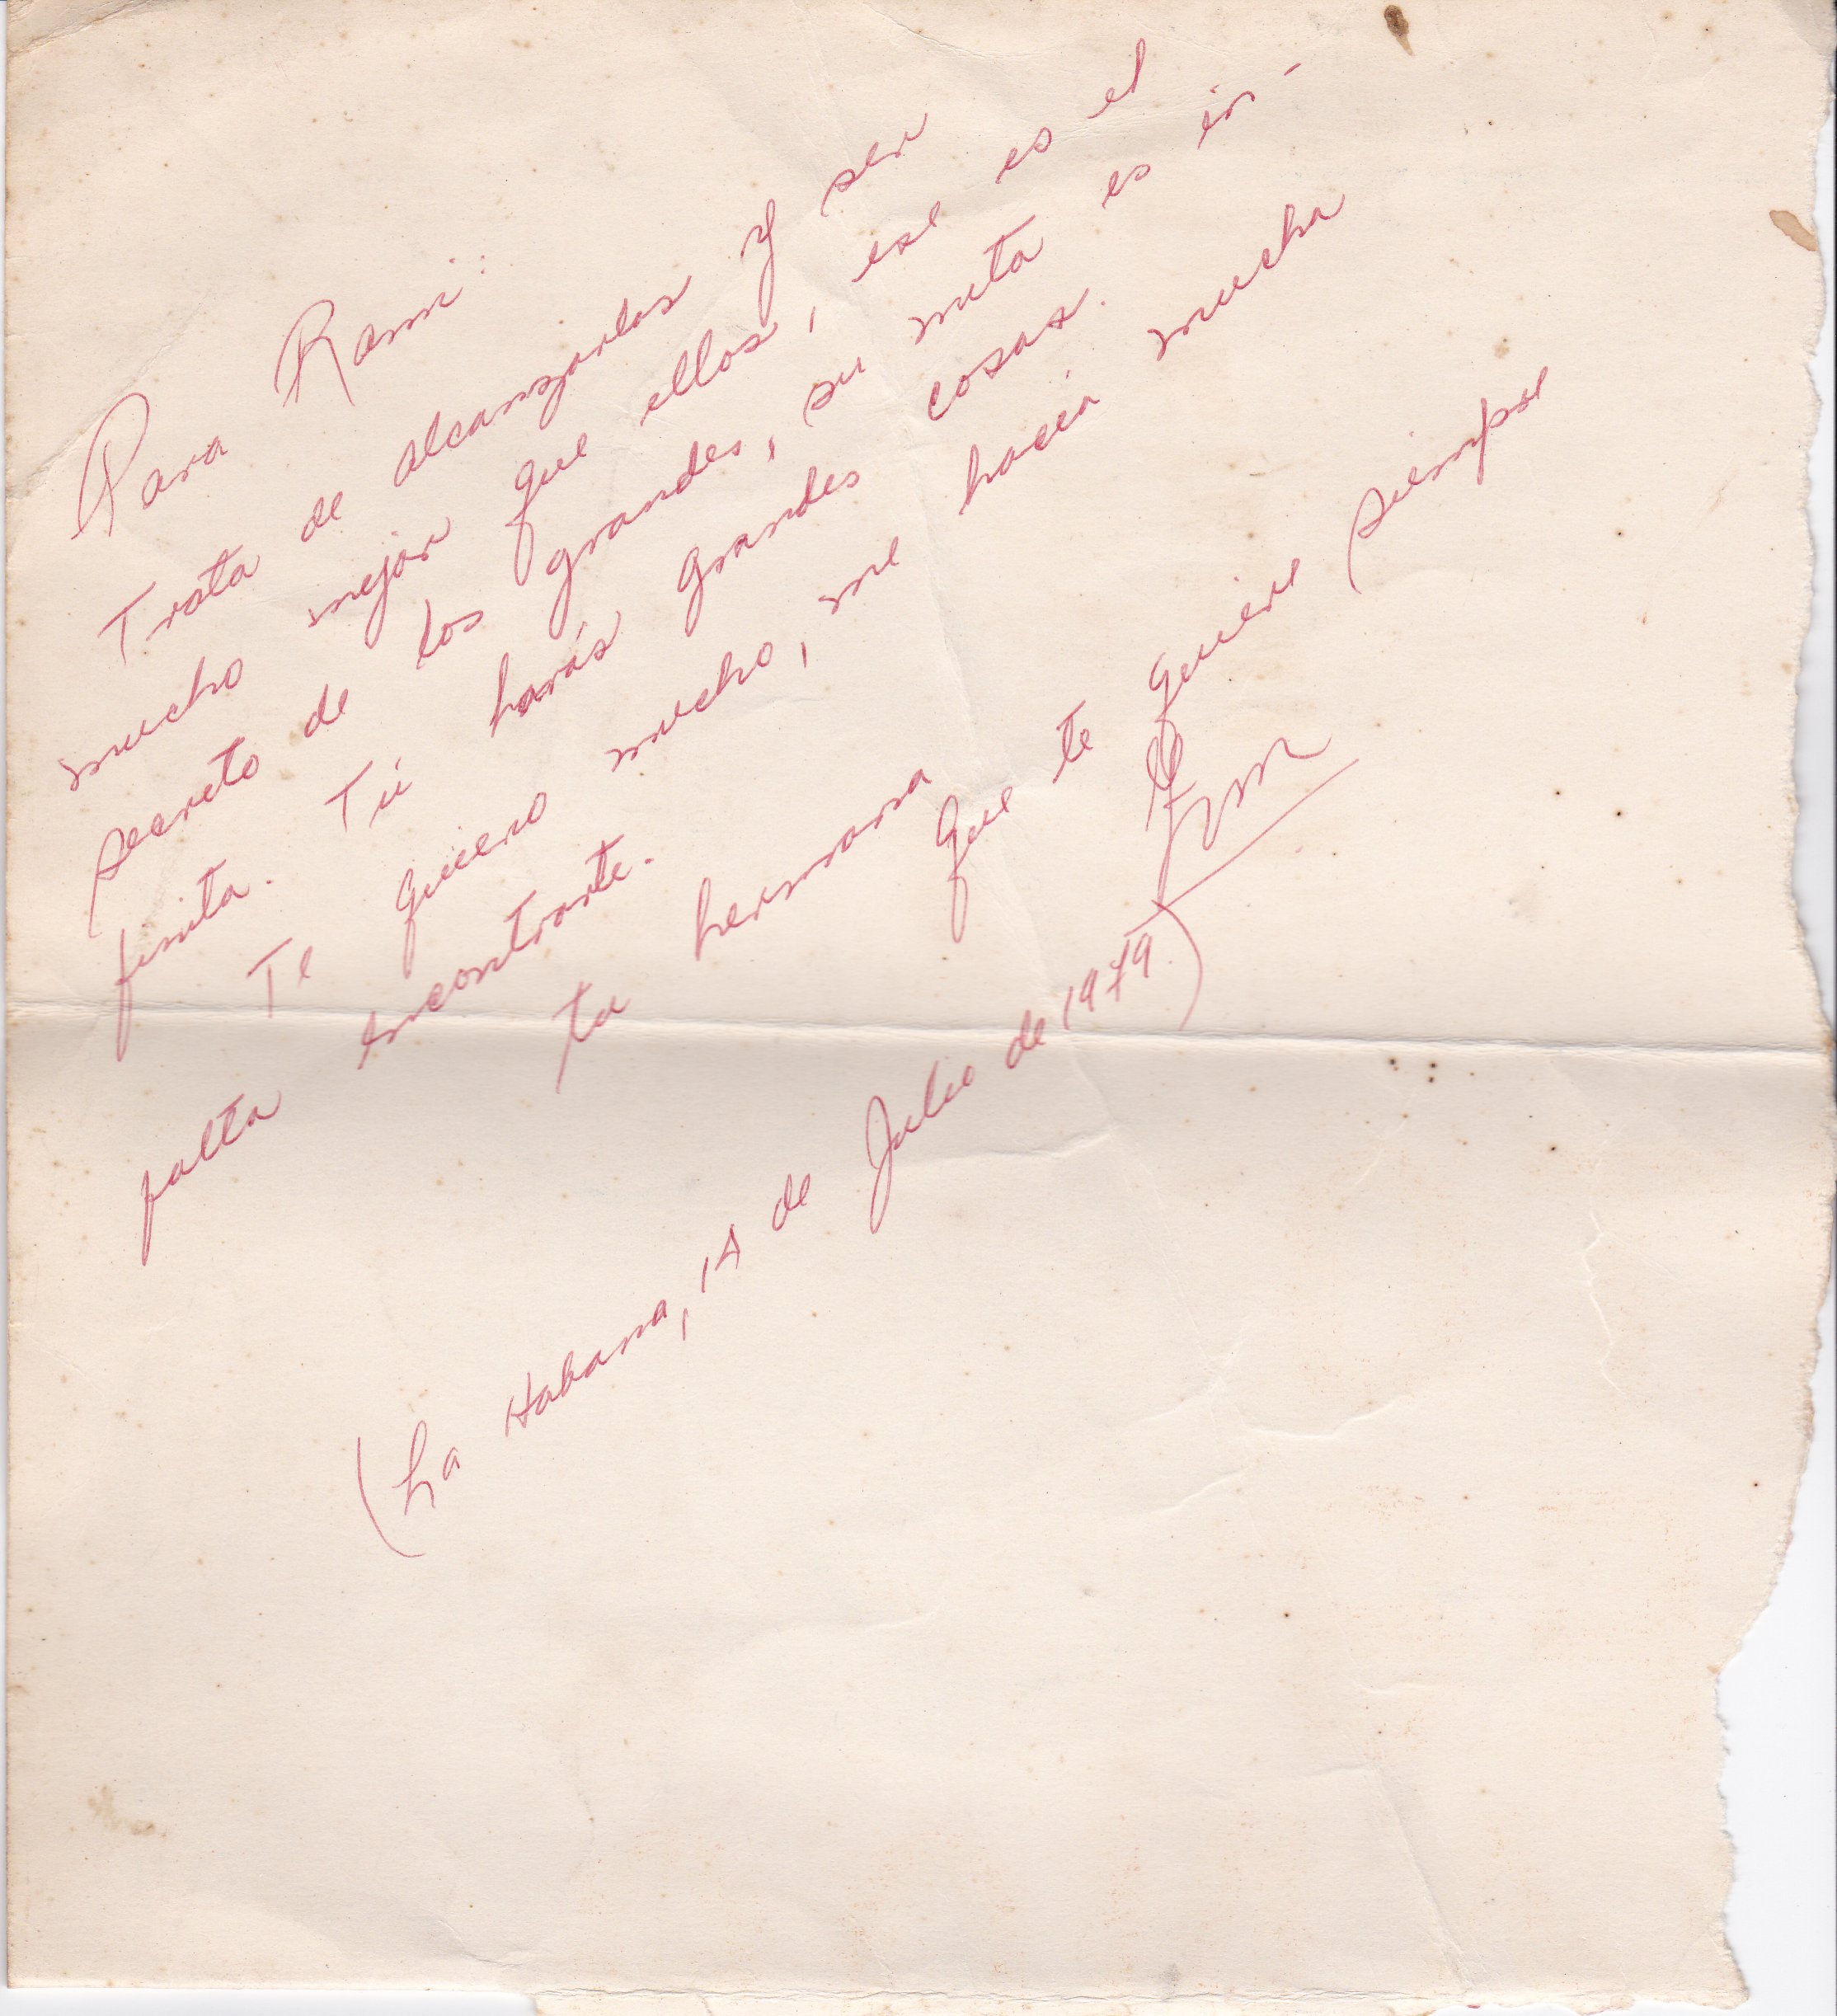 Para Rami:
Trata de alcanzarlos y ser
mucho mejor que ellos, ese es el
secreto de los grandes, su meta es in-
finita. Tú harás grandes cosas.
Te quiero mucho, me hacía mucha
falta encontrarte.
tu hermana que te quiere siempre
(La Habana, 14 de Julio de 1979.)